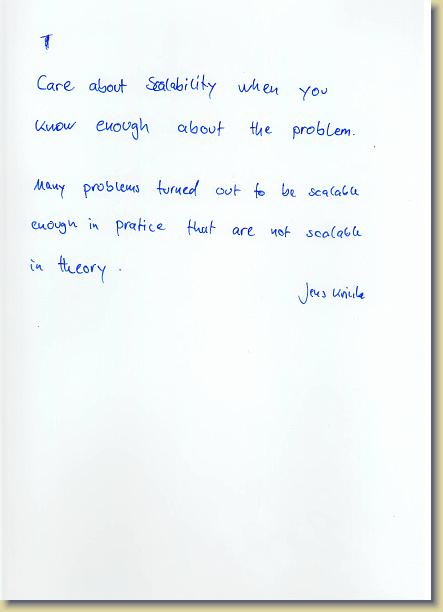 Care about Scalability when you
know enough about the problem.
Many problems turned out to be scalable
enough in pratice that are not scalable
in theory.
Jens Krinke